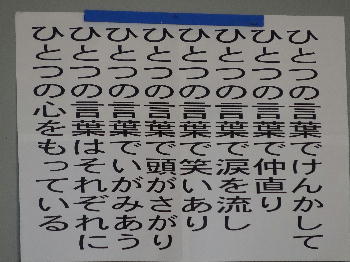 ひとつの言葉でけんかして
ひとつの言葉で仲直り
ひとつの言葉で涙を流し
ひとつの言葉で笑いあり
ひとつの言葉で頭がさがり
ひとつの言葉でいがみあう
ひとつの言葉はそれぞれに
ひとつの心をもっている